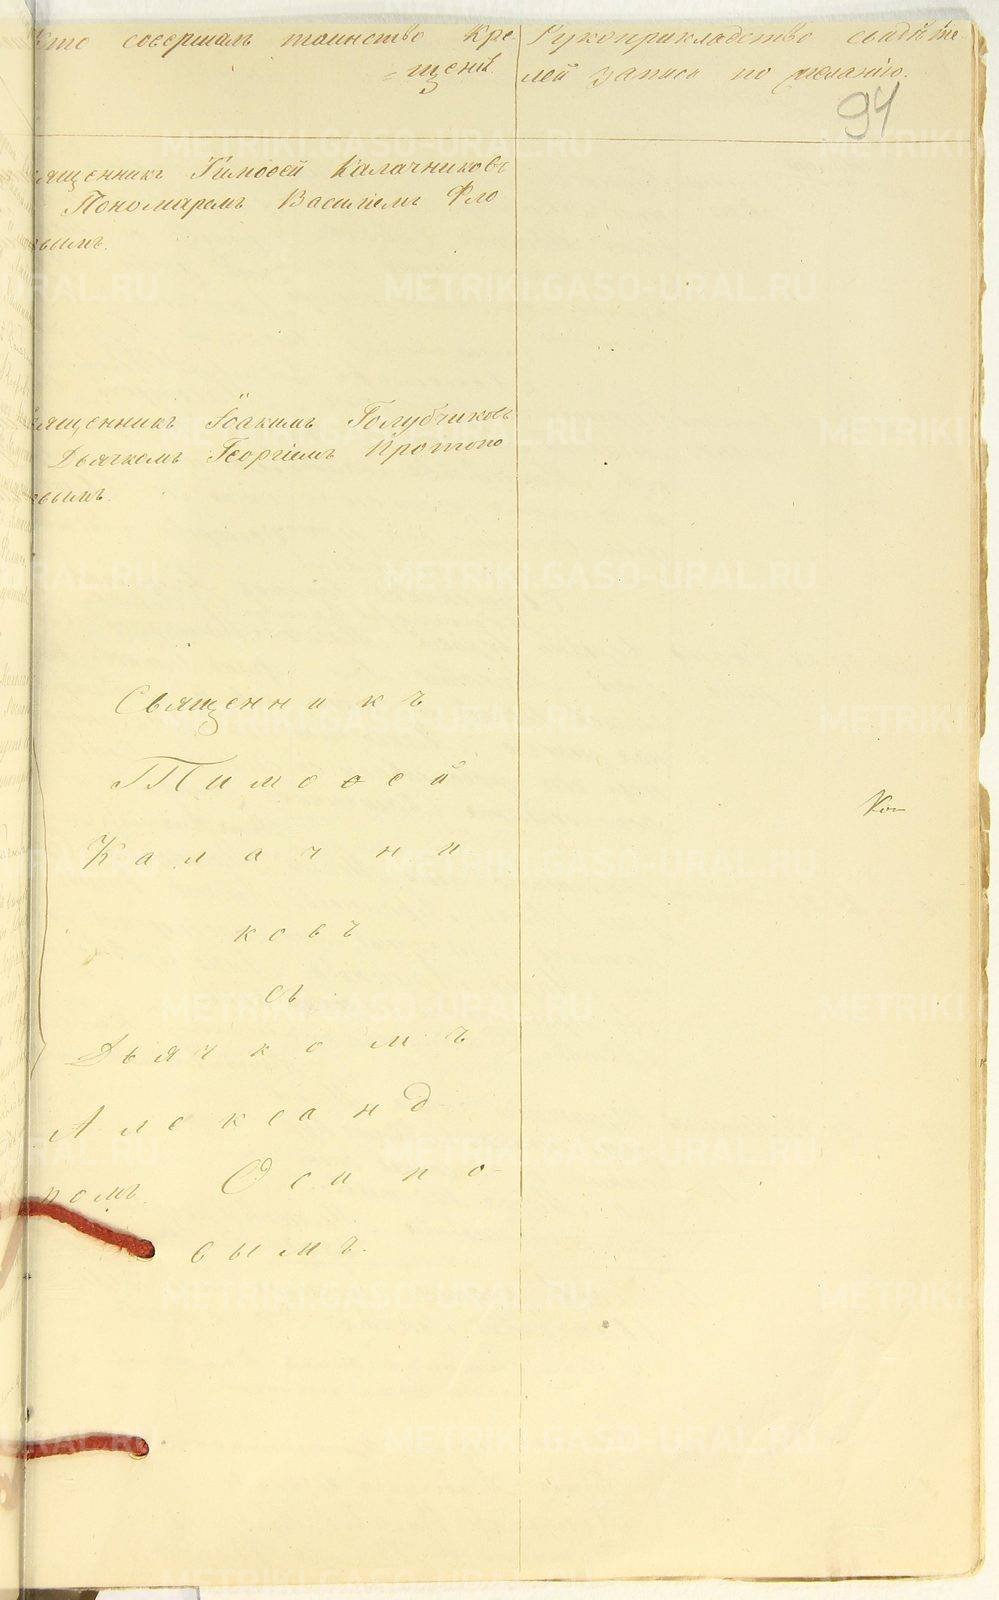 Кто совершалъ таинство Кре-
=щенія.
Рукоприкладство свидѣте-
лей записи по желанію.
94
ященникъ Тимоѳей Калачниковъ
Пономаремъ Василіемъ Фло
вымъ.
ященникъ Іоакимъ Голубчиковъ
Дьячкомъ Георгіемъ Протопо
вымъ.
Священникъ
Тимоѳей
Калачни
ковъ
съ
Дьячкомъ
Александ
ромъ. Осипо-
вымъ.
METRIKI.GASO-URAL.RU